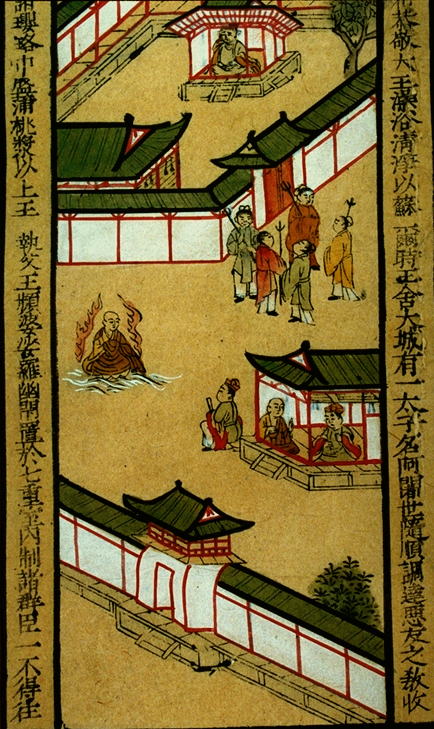 恭敬大王澡浴清淨以蘇
爾時王舍大城有一太子名阿闍世隨順調達惡友之教收
諸瓔珞中盛蒲桃漿密以上王
執父王頻婆娑羅幽閉置於七重室內制諸群臣一不得往